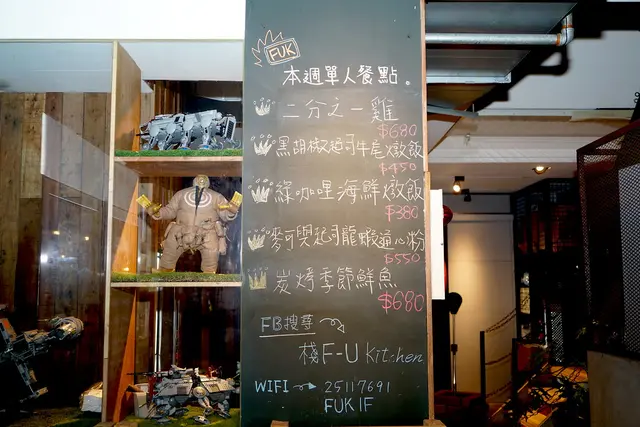 FUK
本週單人餐點。
二分之一雞
$680
黑胡椒起司牛尾燉飯
$450
綠咖哩海鮮燉飯
$380
麥可與起司龍蝦通心粉
$550
炭烤季節鮮魚
$680
FB搜尋
棧F-U Kitchen
WIFI 25117691
FUK IF